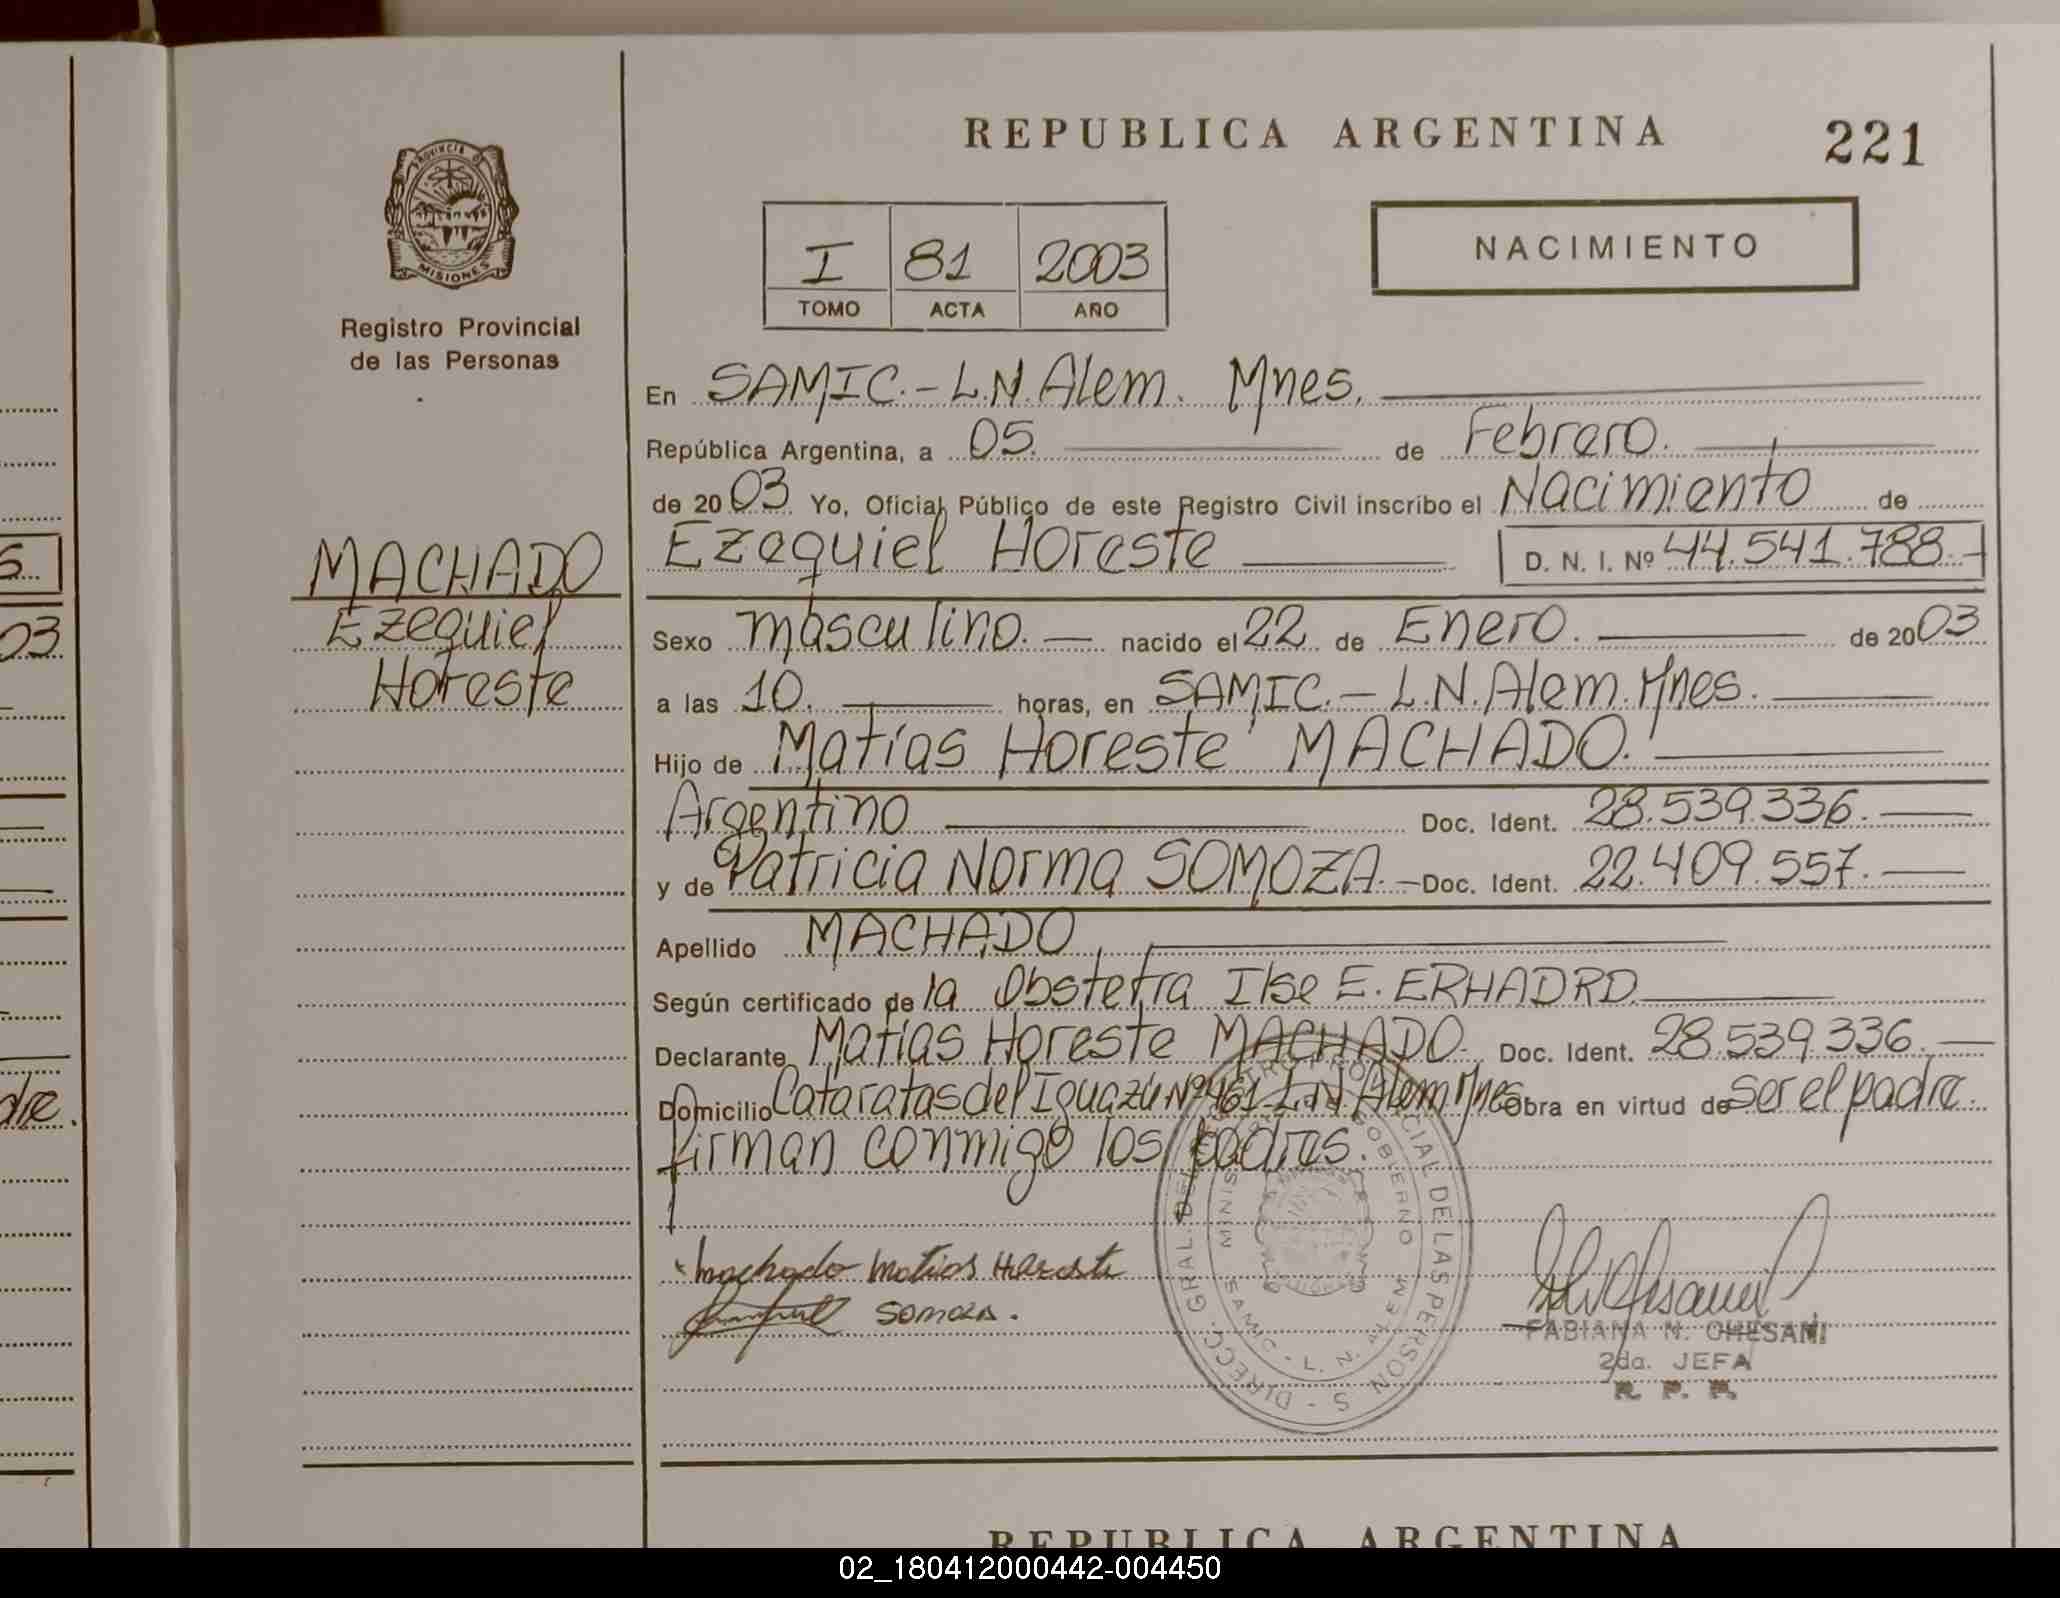 REPUBLICA ARGENTINA 221
PROVINCIA DE
MISIONES
Registro Provincial
de las Personas
I 81 2003
TOMO ACTA AÑO
NACIMIENTO
En SAMIC.-L.N.Alem. Mnes.
República Argentina, a 05. de Febrero.
de 2003 Yo, Oficial Público de este Registro Civil inscribo el Nacimiento de
Ezequiel Horeste D. N. I. Nº 44.541.788.-
MACHADO
Ezequiel
Horeste
Sexo masculino. — nacido el 22 de Enero. de 2003
a las 10. horas, en SAMIC.-L.N.Alem.Mnes.
Hijo de Matías Horeste MACHADO.
Argentino Doc. Ident. 28.539.336.
y de Patricia Norma SOMOZA.- Doc. Ident. 22.409.557.
Apellido MACHADO
Según certificado de la Obstetra Ilse E. ERHADRD
Declarante Matías Horeste MACHADO. Doc. Ident. 28.539.336.
Domicilio Cataratas del Iguazú Nº461-L.N.Alem Mnes Obra en virtud de ser el padre.
firman conmigo los padres.
machado matias Horeste
somoza.
FABIANA N. CHESANI
2da. JEFA
R. P. P.
S
03
dre.
REPUBLICA ARGENTINA
02_180412000442-004450